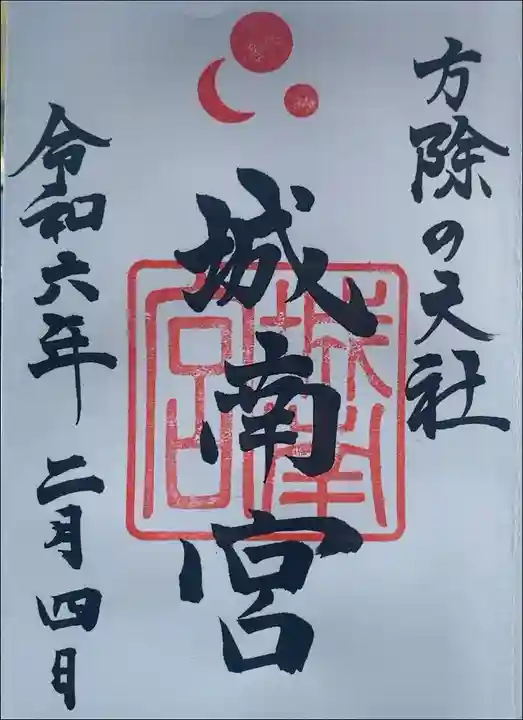 方除の大社
城南宮
城南宮
令和六年二月四日